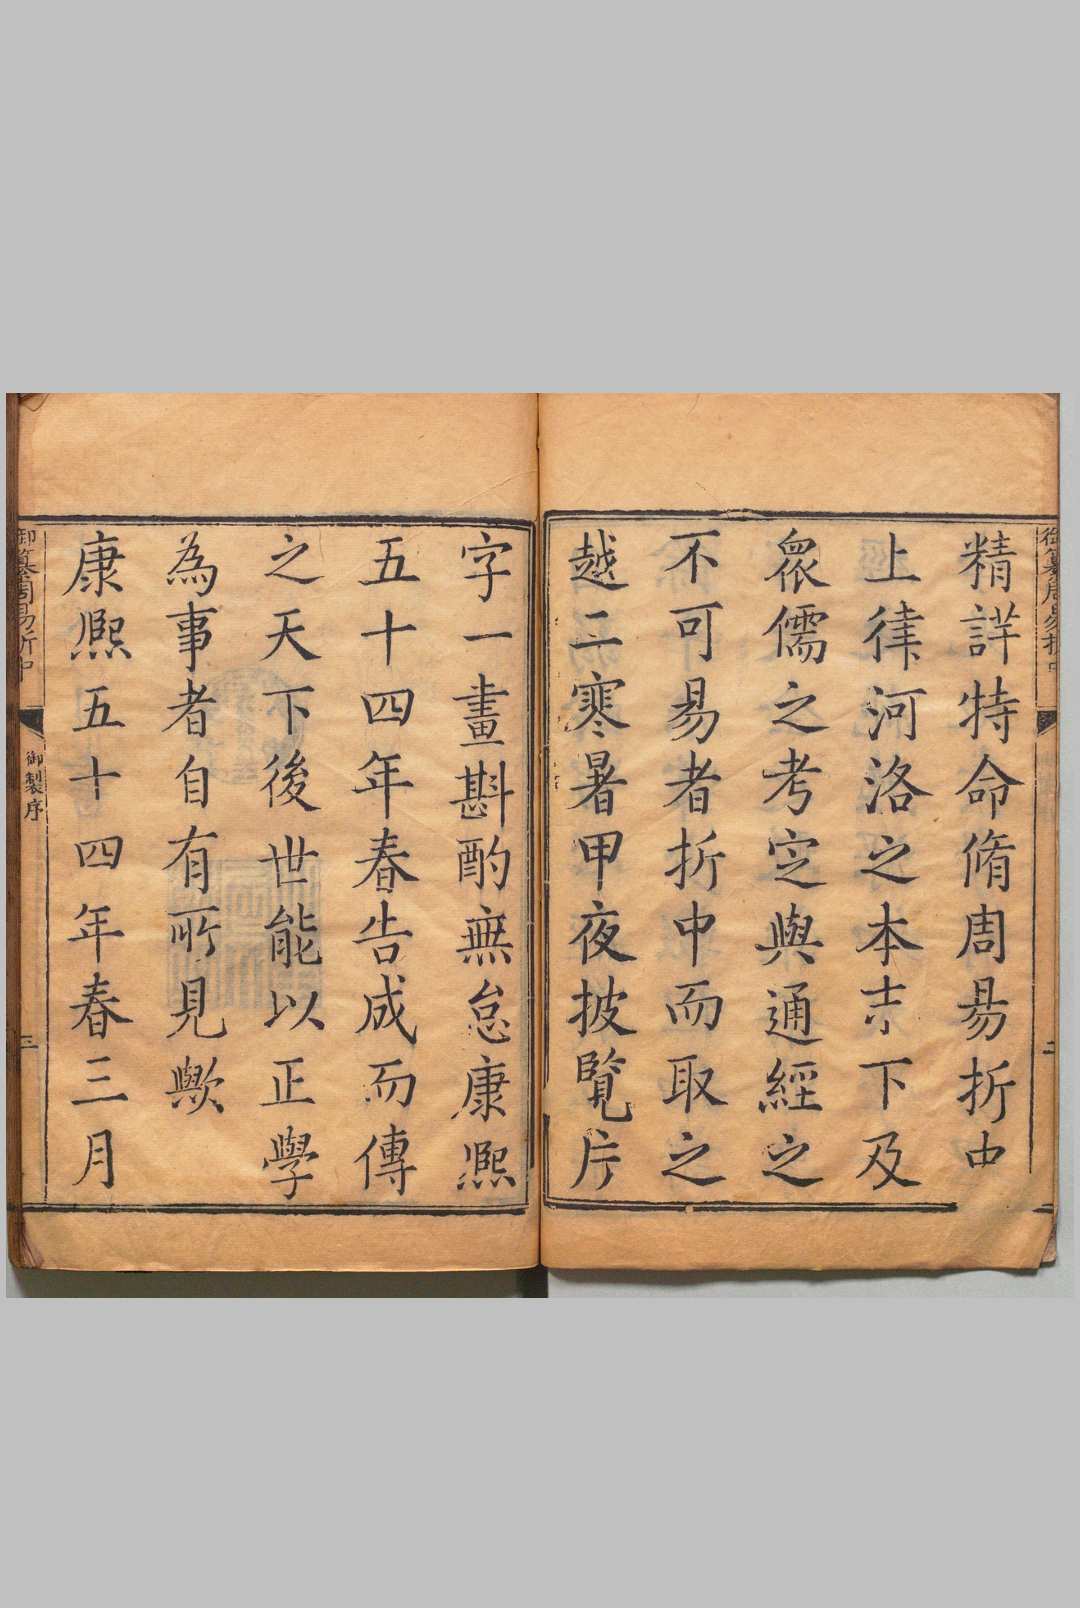 御纂周易折中
二
精詳特命脩周易折中
上律河洛之本末下及
衆儒之考定與通經之
不可易者折中而取之
越二寒暑甲夜披覽片
字一畫斟酌無怠康熙
五十四年春告成而傳
之天下後世能以正學
為事者自有所見歟
康熙五十四年春三月
御纂周易折中
御製序
三